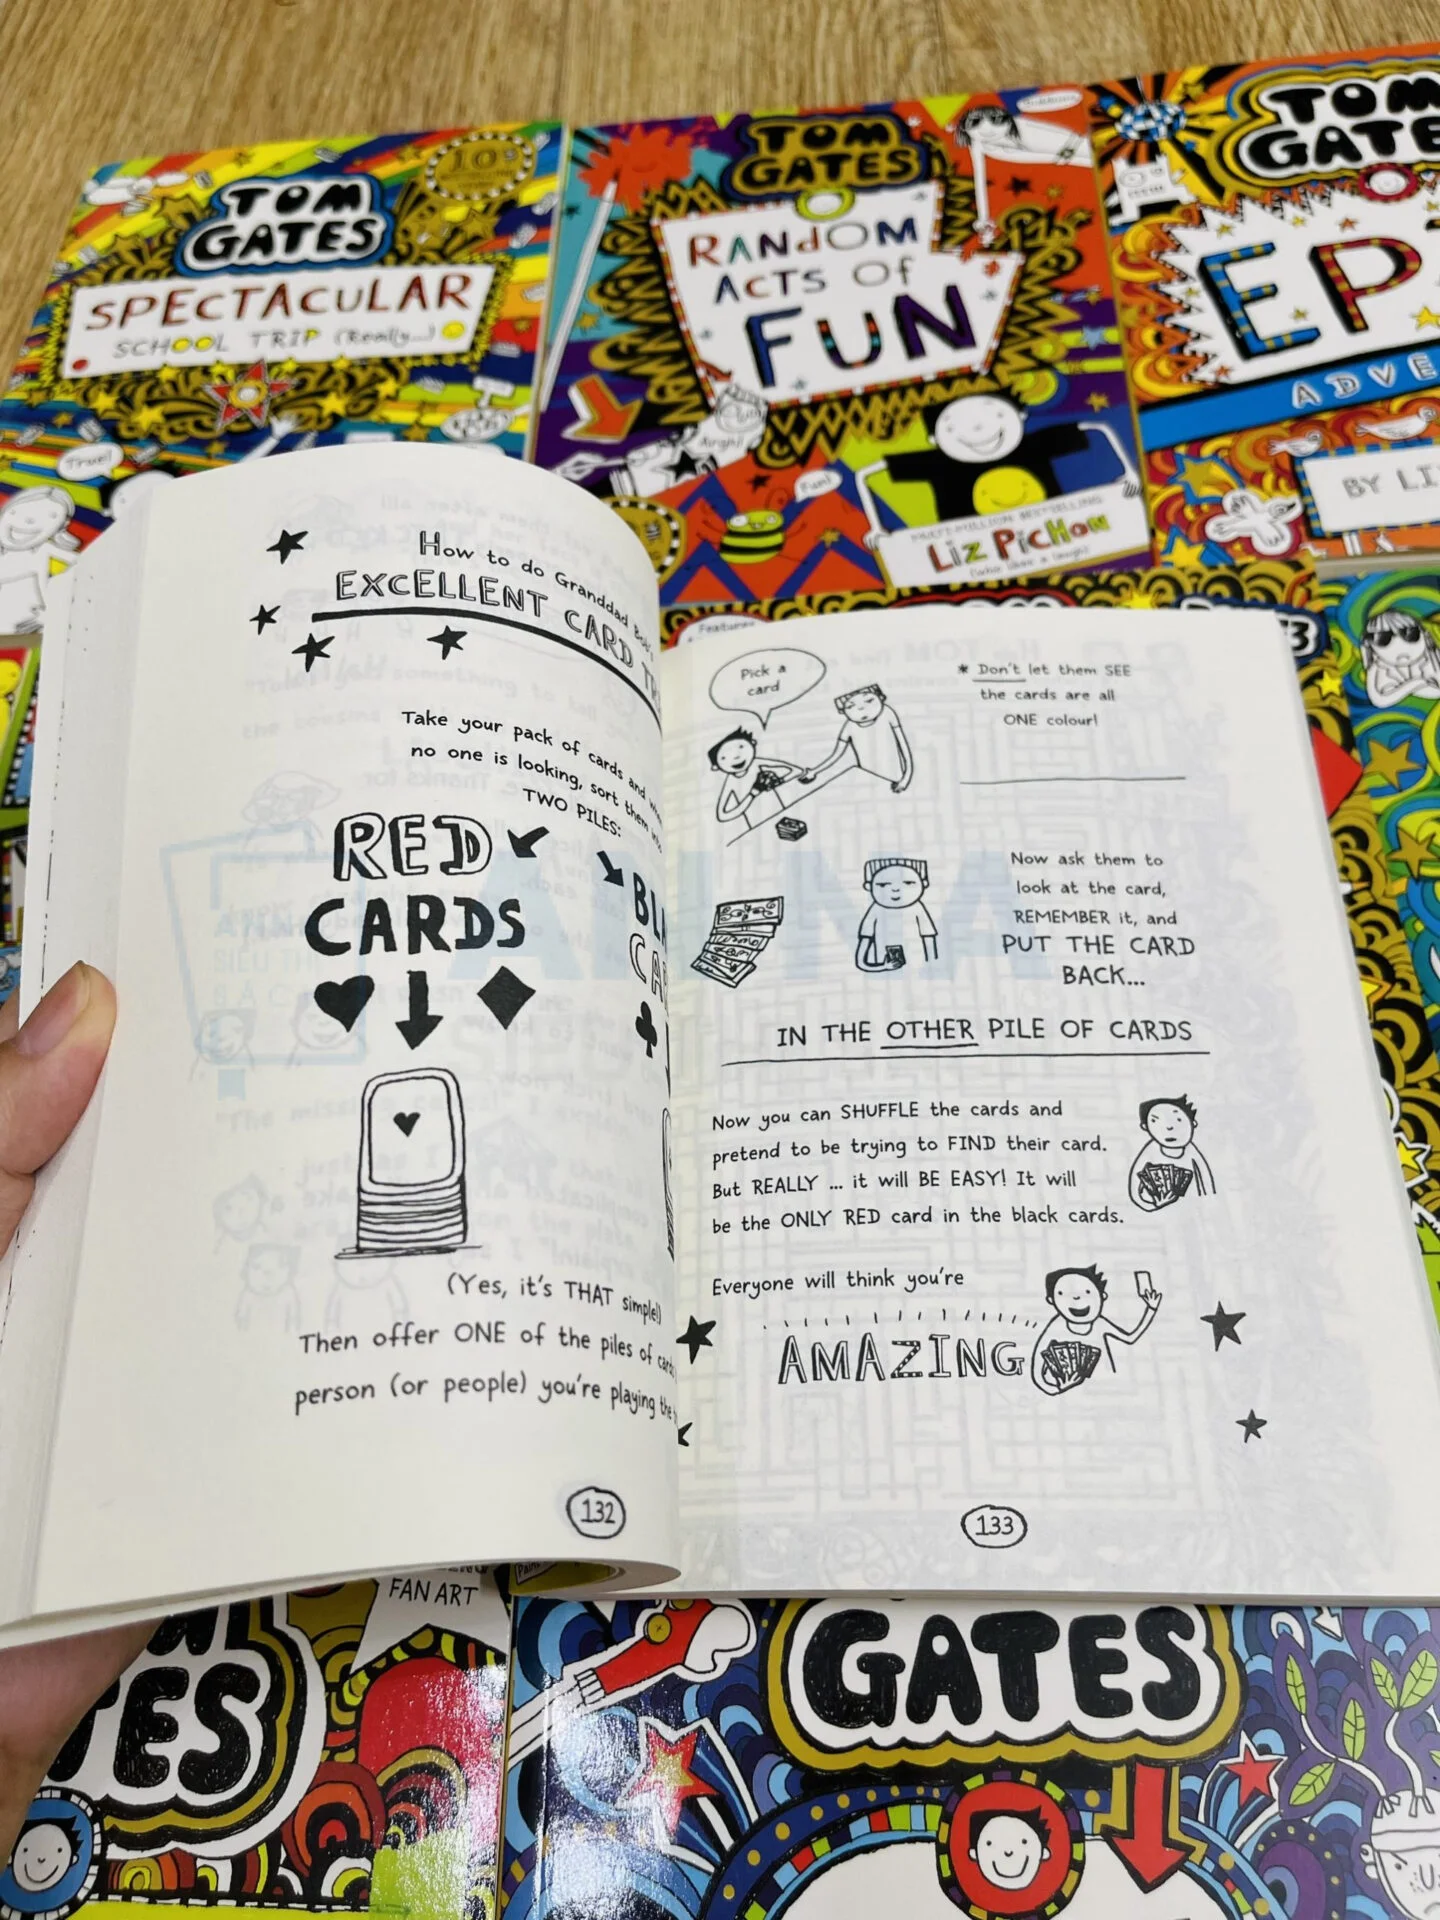 TOM
GATES
SPECTACULAR
SCHOOL TRIP (Really...)
True!
TOM
GATES
RANDOM
ACTS OF
FUN
Fun!
MULTI-MILLION BESTSELLING
LIZ PICHON
TOM
ADVE
BY LI
Features
How to do Granddad Bob's
EXCELLENT CARD
Take your pack of cards and
no one is looking, sort them into
TWO PILES:
RED
CARDS
(Yes, it's THAT simple!)
Then offer ONE of the piles of cards
person (or people) you're playing the
132
Pick a
card
* Don't let them SEE
the cards are all
ONE colour!
Now ask them to
look at the card,
REMEMBER it, and
PUT THE CARD
BACK...
IN THE OTHER PILE OF CARDS
Now you can SHUFFLE the cards and
pretend to be trying to FIND their card.
But REALLY ... it will BE EASY! It will
be the ONLY RED card in the black cards.
Everyone will think you're
AMAZING
133
FAN ART
GATES